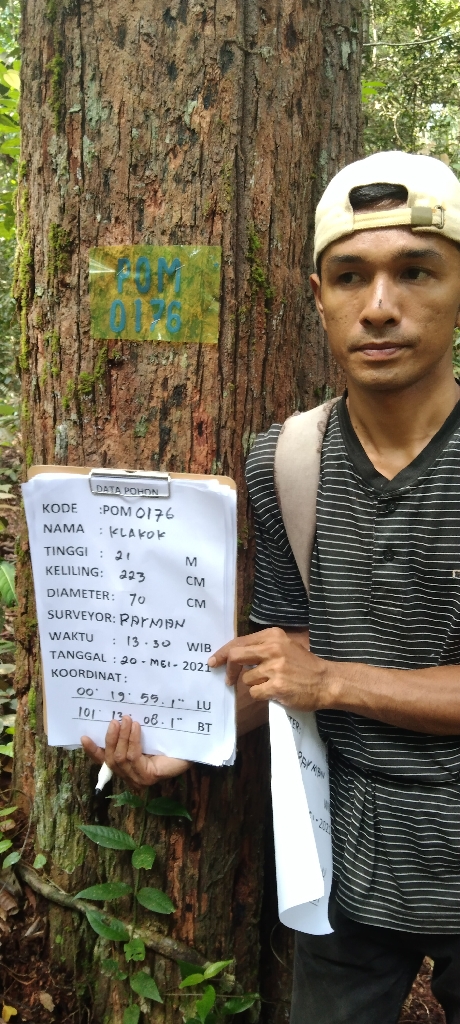 POM
0176
DATA POHON
KODE : POM 0176
NAMA : KLAKOK
TINGGI : 21 M
KELILING: 223 CM
DIAMETER: 70 CM
SURVEYOR: RAYMAN
WAKTU : 13.30 WIB
TANGGAL : 20 - MEI - 2021
KOORDINAT:
00° 19' 55.1" LU
101° 13' 08.1" BT